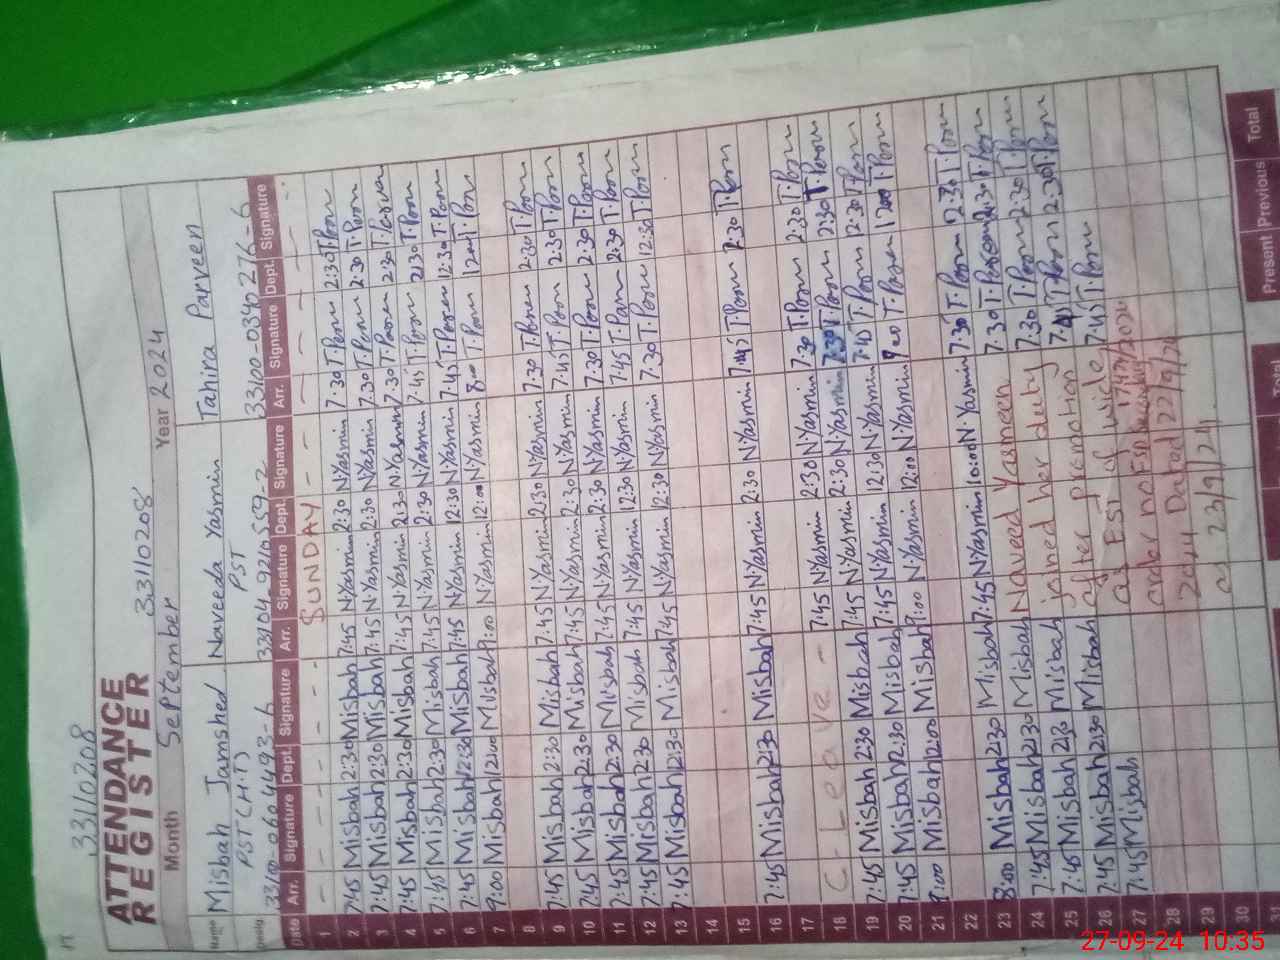 33110208
ATTENDANCE REGISTER 33110208
Month September Year 2024
Name Misbah Jamshed Naveeda Yasmin Tahira Parveen
PST(H.T) PST
33104-9216559-2 33100-0340276-6
Date Arr. Signature Dept. Signature Arr. Signature Dept. Signature Arr. Signature Dept. Signature
1 SUNDAY
2 7:45 Misbah 2:30 Misbah 7:45 N.Yasmin 2:30 N.Yasmin 7:30 2:30
3 7:45 Misbah 2:30 Misbah 7:45 N.Yasmin 2:30 N.Yasmin 7:30 2:30
4 7:45 Misbah 2:30 Misbah 7:45 N.Yasmin 2:30 N.Yasmin 7:30 2:30
5 7:45 Misbah 2:30 Misbah 7:45 N.Yasmin 2:30 N.Yasmin 7:45 2:30
6 7:45 Misbah 12:30 Misbah 7:45 N.Yasmin 12:30 N.Yasmin 7:45 12:30
7 9:00 Misbah 12:00 Misbah 9:00 N.Yasmin 12:00 N.Yasmin 8:00 12:00
8
9 7:45 Misbah 2:30 Misbah 7:45 N.Yasmin 2:30 N.Yasmin 7:30 2:30
10 7:45 Misbah 2:30 Misbah 7:45 N.Yasmin 2:30 N.Yasmin 7:45 2:30
11 7:45 Misbah 2:30 Misbah 7:45 N.Yasmin 2:30 N.Yasmin 7:30 2:30
12 7:45 Misbah 2:30 Misbah 7:45 N.Yasmin 12:30 N.Yasmin 7:45 2:30
13 7:45 Misbah 12:30 Misbah 7:45 N.Yasmin 12:30 N.Yasmin 7:30 12:30
14
15
16 7:45 Misbah 2:30 Misbah 7:45 N.Yasmin 2:30 N.Yasmin 7:45 2:30
17
18 C-Leave - 7:45 N.Yasmin 2:30 N.Yasmin 7:30 2:30
19 7:45 Misbah 2:30 Misbah 7:45 N.Yasmin 2:30 N.Yasmin 7:30 2:30
20 7:45 Misbah 12:30 Misbah 7:45 N.Yasmin 12:30 N.Yasmin 7:45 2:30
21 9:00 Misbah 12:00 Misbah 9:00 N.Yasmin 12:00 N.Yasmin 9:00 12:00
22
23 8:00 Misbah 2:30 Misbah 7:45 N.Yasmin 10:00 N.Yasmin 7:30 2:30
24 7:45 Misbah 2:30 Misbah Naveed Yasmeen 7:30 2:30
25 7:45 Misbah 2:30 Misbah joined her duty 7:30 2:30
26 7:45 Misbah 2:30 Misbah after promotion 2:30
27 7:45 Misbah as ESt of wide 7:45
28 order no
29 2024 Dated 22/9/24
30 23/9/24
31
Present Previous Total
27-09-24 10:35